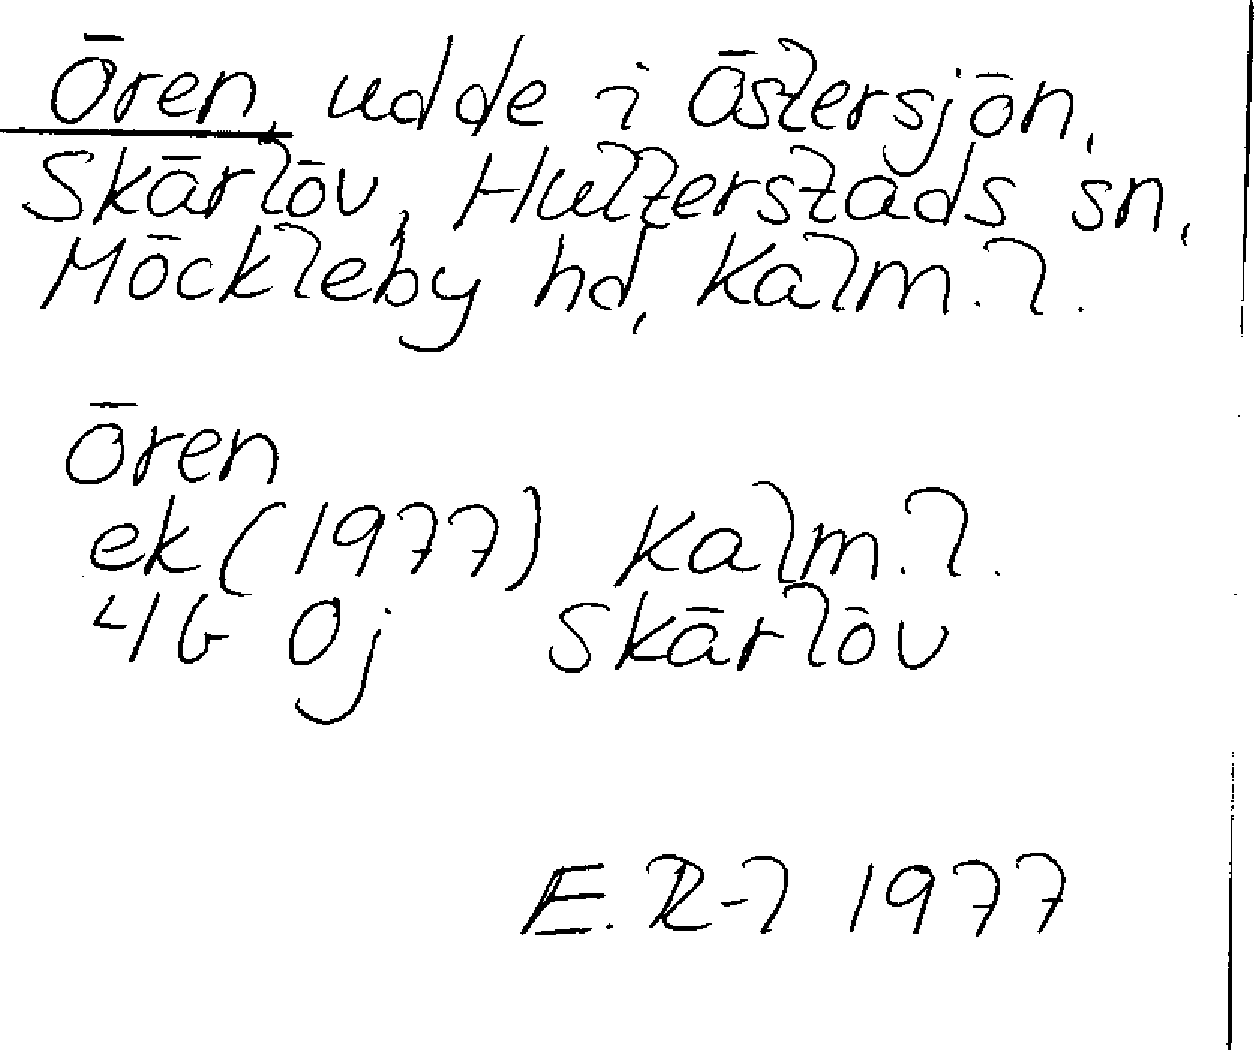 Ören, udde i Östersjön,
Skärlöv, Hulterstads sn,
Möckleby hd, Kalm. l.
Ören
ek (1977) Kalm. l.
4G 0j Skärlöv
E. R-l 1977